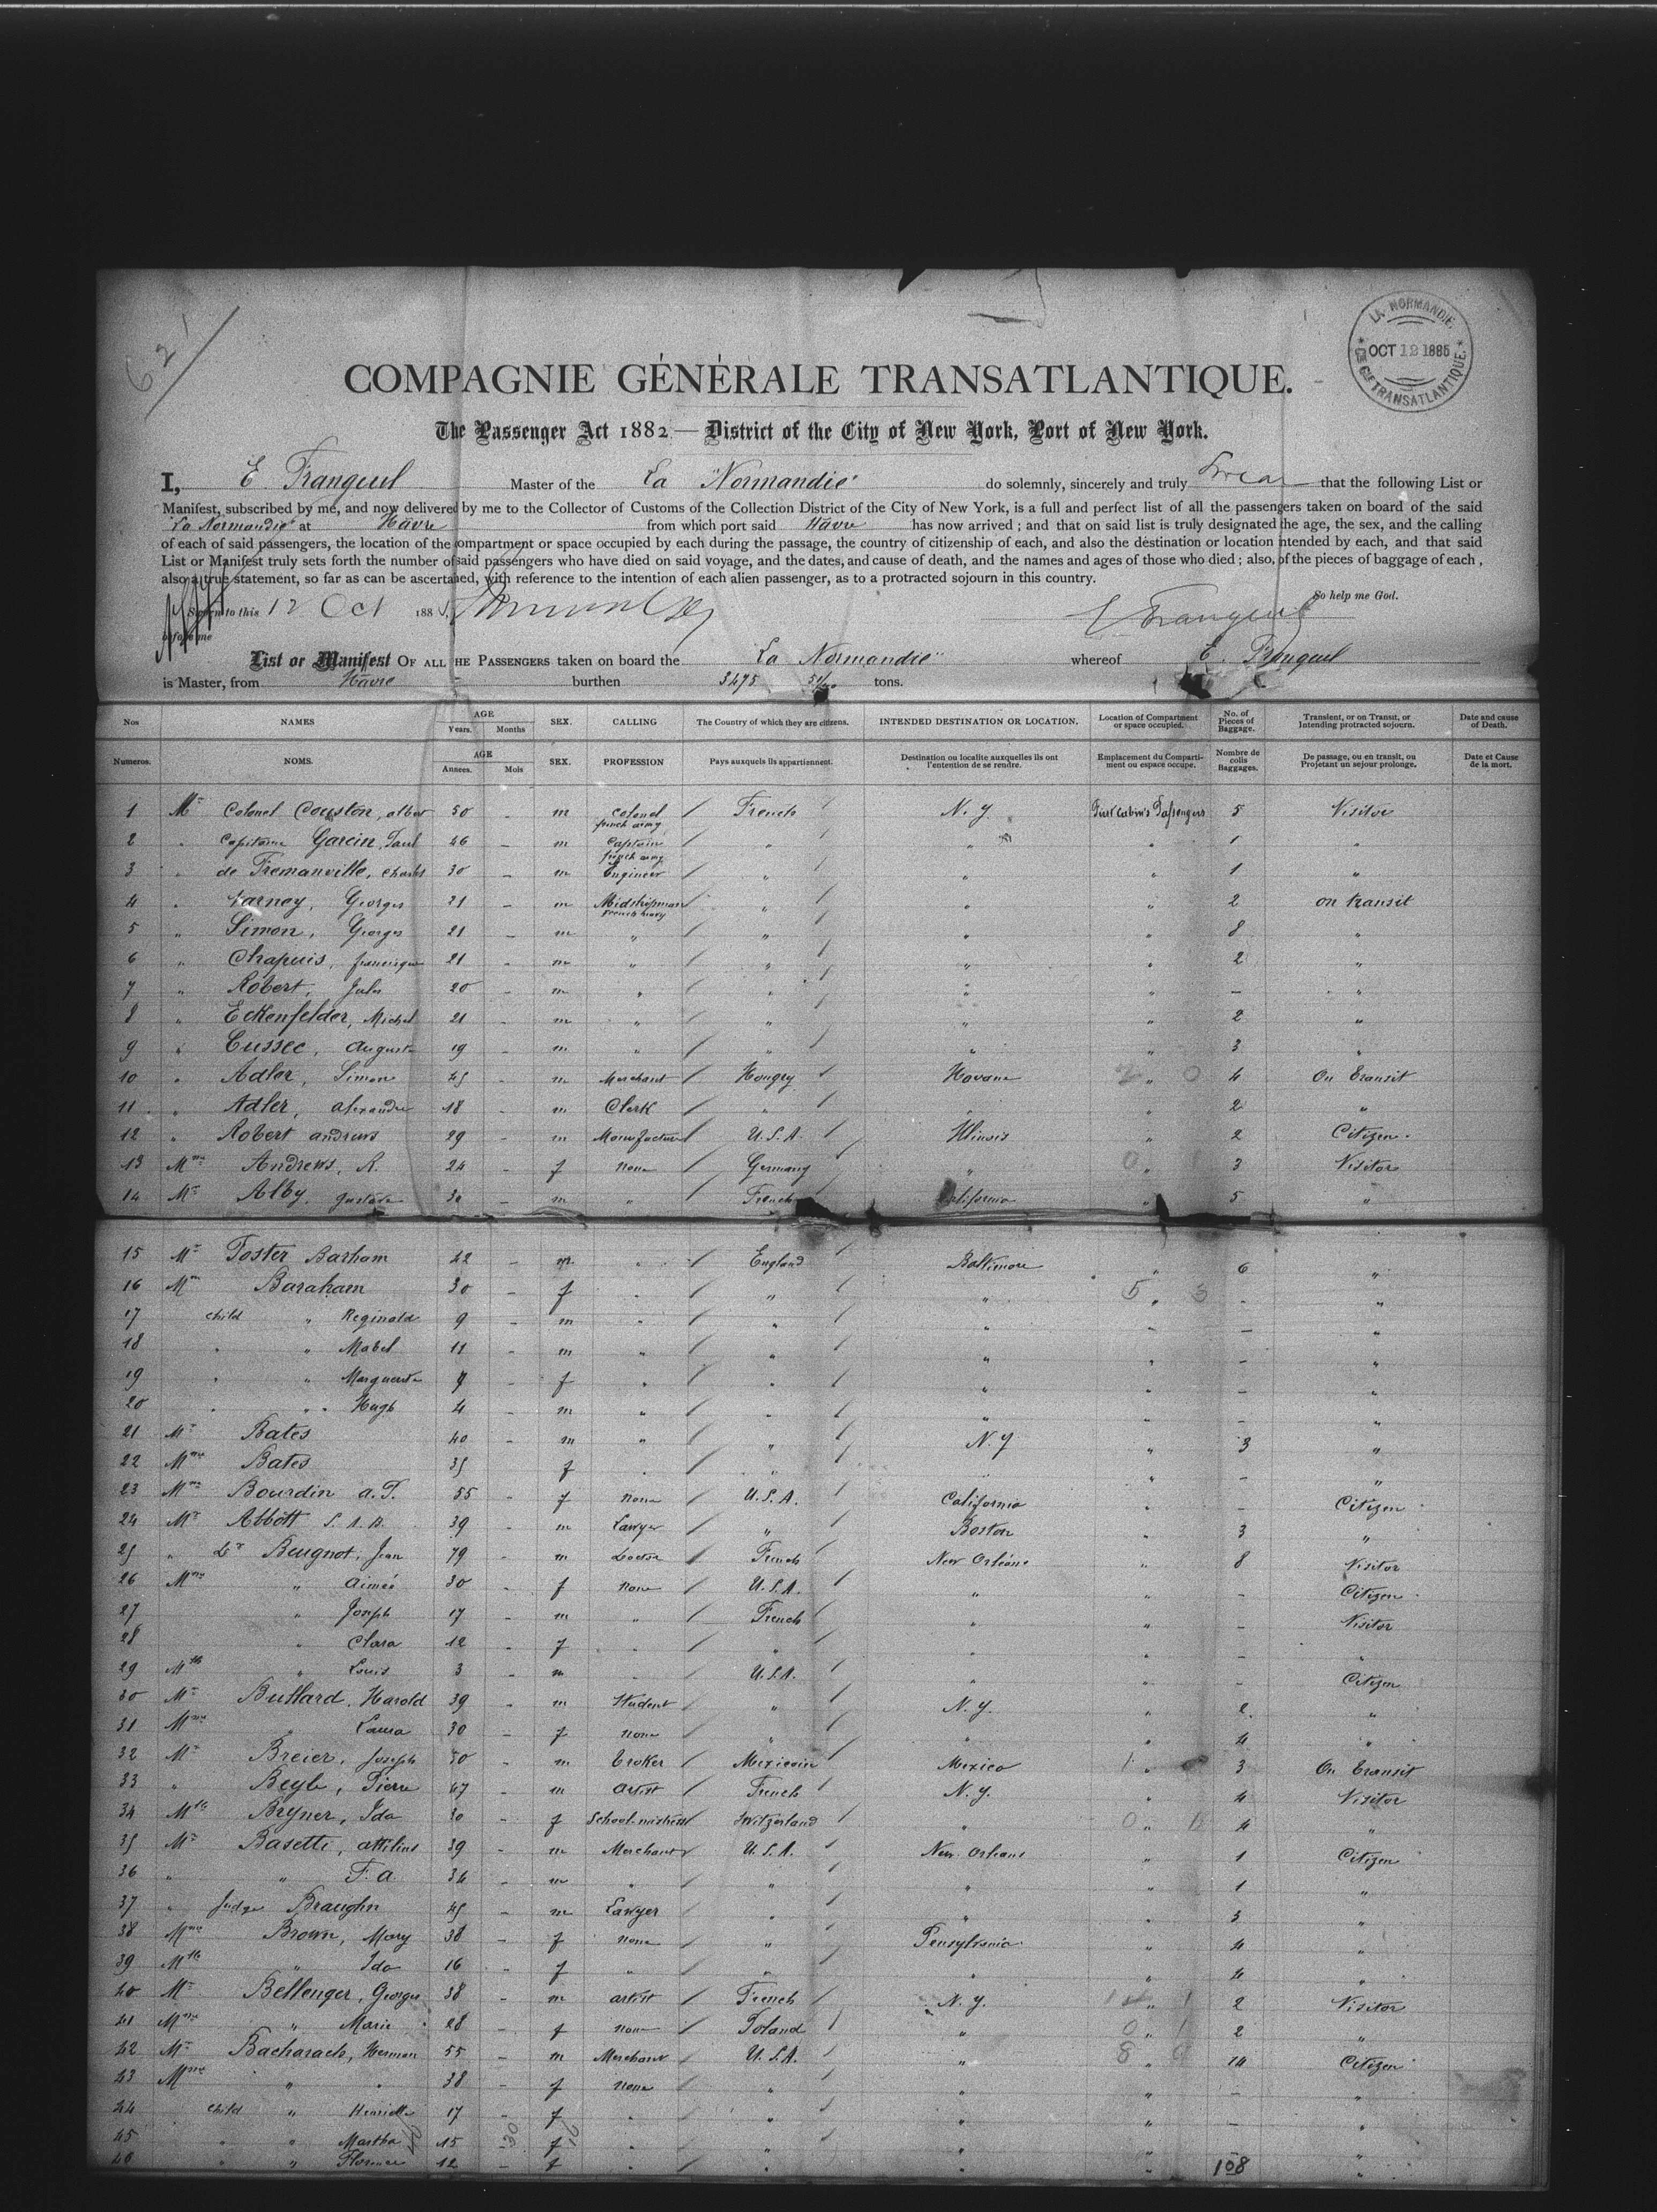 621
LA NORMANDIE
OCT 12 1885
CIE GLE TRANSATLANTIQUE
COMPAGNIE GÉNÉRALE TRANSATLANTIQUE.
The Passenger Act 1882 — District of the City of New York, Port of New York.
I, E Frangeul Master of the La "Normandie" do solemnly, sincerely and truly Swear that the following List or
Manifest, subscribed by me, and now delivered by me to the Collector of Customs of the Collection District of the City of New York, is a full and perfect list of all the passengers taken on board of the said
"La Normandie" at Hâvre from which port said Hâvre has now arrived ; and that on said list is truly designated the age, the sex, and the calling
of each of said passengers, the location of the compartment or space occupied by each during the passage, the country of citizenship of each, and also the déstination or location intended by each, and that said
List or Manifest truly sets forth the number of said passengers who have died on said voyage, and the dates, and cause of death, and the names and ages of those who died ; also, of the pieces of baggage of each ,
also a true statement, so far as can be ascertained, with reference to the intention of each alien passenger, as to a protracted sojourn in this country.
So help me God.
Sworn to this 12 Oct 1885 E Frangeul
before me
List or Manifest OF ALL THE PASSENGERS taken on board the La Normandie" whereof E. Frangeul
is Master, from Hâvre burthen 3475 tons.
Nos NAMES AGE Years. Months SEX. CALLING The Country of which they are citizens. INTENDED DESTINATION OR LOCATION. Location of Compartment or space occupied. No. of Pieces of Baggage. Transient, or on Transit, or Intending protracted sojourn. Date and cause of Death.
Numeros. NOMS. AGE Annees. Mois SEX. PROFESSION Pays auxquels ils appartiennent. Destination ou localite auxquelles ils ont l'entention de se rendre. Emplacement du Comparti-ment ou espace occupe. Nombre de colis Baggages. De passage, ou en transit, ou Projetant un sejour prolonge. Date et Cause de la mort.
1 Mr Colonel Couston, alber 50 - m Colonel french army French N.Y. First Cabin's Passengers 5 Visitor
2 " Capitaine Garcin, Paul 46 - m Captain french army " " " 1 "
3 " de Tremanville, Charles 30 - m Engineer " " " 1 "
4 " Varney, Georges 21 - m Midshipman French navy " " " 2 on transit
5 " Simon, Georges 21 - m " " " " 8 "
6 " Chapuis, francisque 21 - m " " " " 2 "
7 " Robert, Jules 20 - m " " " " - "
8 " Eckenfelder, Michel 21 - m " " " " 2 "
9 " Cussec, Auguste 19 - m " " " " 3 "
10 " Adler, Simon 45 - m Merchant Hongry Havana " 4 On transit
11 " Adler, alexandre 18 - m Clerk " " " 2 "
12 " Robert andrews 29 - m Manufacturer U.S.A. Illinois " 2 Citizen
13 Mme Andrews, R. 24 - f None Germany " " 3 Visitor
14 Mr Alby, Gustave 30 - m " French California " 5 "
15 Mr Foster Barham 42 - m " England Baltimore " 6 "
16 Mme Baraham 30 - f " " " " - "
17 child " Reginald 9 - m " " " " - "
18 " " Mabel 11 - m " " " " - "
19 " " Marguerite 7 - f " " " " - "
20 " " Hugh 4 - m " " " " - "
21 Mr Bates 40 - m " " N.Y " 3 "
22 Mme Bates 35 f " " " " - "
23 Mme Bourdin a.T. 55 - f None U.S.A. California " - Citizen
24 Mr Abbott S.A.B. 39 - m Lawyer " Boston " 3 "
25 " Dr Beugnot, Jean 79 - m Doctor French New Orléans " 8 Visitor
26 Mme " Aimée 30 - f None U.S.A. " " - Citizen
27 " Joseph 17 - m " French " " - Visitor
28 " Clara 12 - f " " " " - "
29 Mlle " Louis 3 - m " U.S.A. " " - Citizen
30 Mr Bullard, Harold 39 - m Student " N.Y. " 2 "
31 Mme " Laura 30 - f None " " " 4 "
32 Mr Breier, Joseph 50 - m Broker Mexicain Mexico " 3 On transit
33 " Beyle, Pierre 47 - m Artist French N.Y. " 4 Visitor
34 Mlle Bryner, Ida 30 - f School-mistress Switzerland " " 4 "
35 Mr Basetti, attilius 39 - m Merchant U.S.A. New Orleans " 1 Citizen
36 " " F. a. 34 - m " " " " 1 "
37 " Judge Braughn 45 - m Lawyer " " " 3 "
38 Mme Brown, Mary 38 - f None " Pensylvania " 4 "
39 Mlle " Ida 16 " f " " " " 4 "
40 Mr Bellenger, Georges 38 - m artist French N.Y. " 2 Visitor
41 Mme " Marie 28 - f none Poland " " 2 "
42 Mr Bacharach, Herman 55 - m Merchant U.S.A. " " 14 Citizen
43 Mme " " 38 - f None " " " - "
44 child " Henriette 17 - f " " " " - "
45 " " Martha 15 - f " " " " "
46 " " Florence 12 - f " " " " "
108